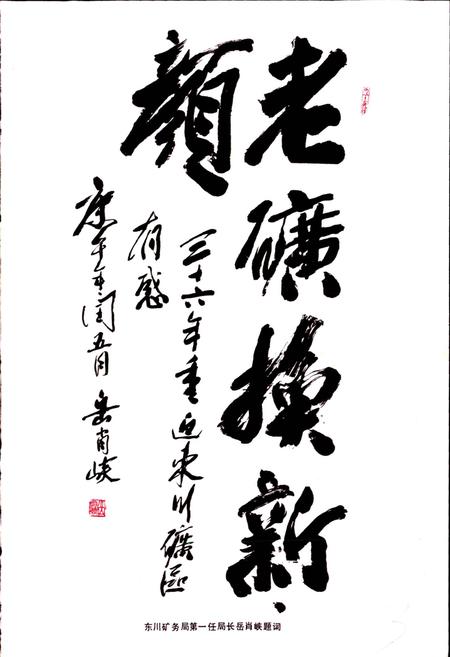 老礦換新
顏
三十六年重返东川礦區
有感
庚午年闰五月 岳肖峡
东川矿务局第一任局长岳肖峡题词